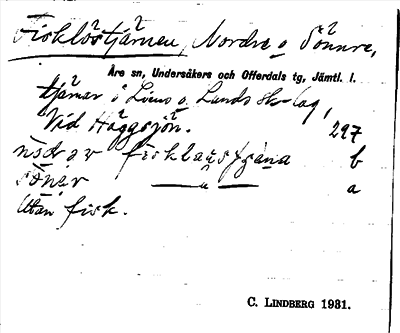 Fisklöstjärnen, Nordre o Sönnre,
Åre sn, Undersåkers och Offerdals tg, Jämtl. l.
tjärnar i Liens o. Lunds skslag,
Vid Häggsjön. 297
nørdər fisklaustjäna b
sönər —"— a
Utan fisk.
C. LINDBERG 1931.